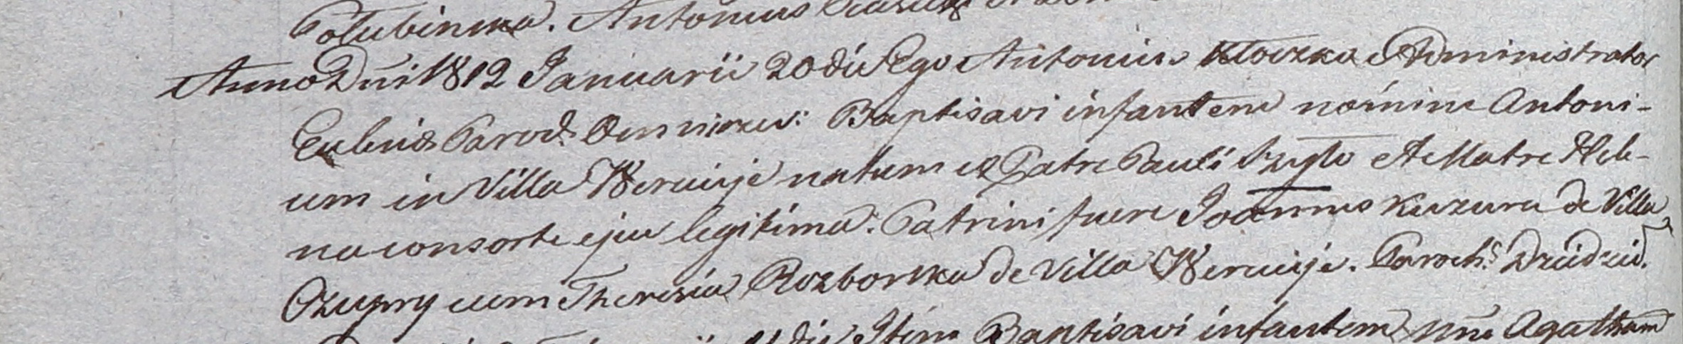 Połubinska. Antonius
Anno Dni 1812 Januarii 20 die Ego Antonius Kłoczko Administrator
Eccłniæ Baptisavi infantem nomine Antoni-
um in Villa Weruije natum ex Patre Pauli Szyło et Matre Hele-
na consorte ejus legitima. Patrini fuere Joannes Kuzura de Villa
Czupry cum Theresia Rozborska de Villa Weruije. Paroch.
die Idem Baptisavi infantem nne Agatham